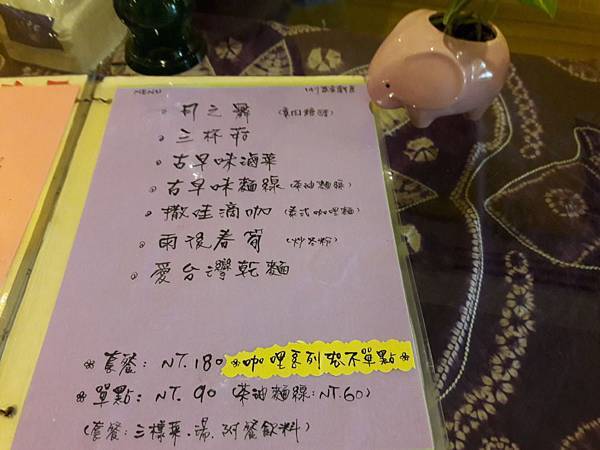 MENU
月之舞
三杯菇
古早味滷菜
古早味麵線(茶油麵線)
撒哇滴咖(泰式咖哩麵)
雨後春筍(炒米粉)
愛台灣乾麵
※套餐: NT.180 ※咖哩系列恕不單點※
※單點: NT. 90 (茶油麵線:NT.60)
(套餐:三樣菜、湯、附餐飲料)